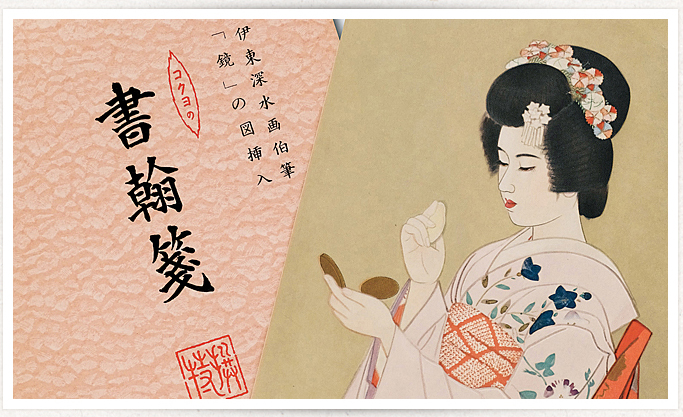 伊東深水画伯筆
「鏡」の図挿入
コクヨの
書翰箋